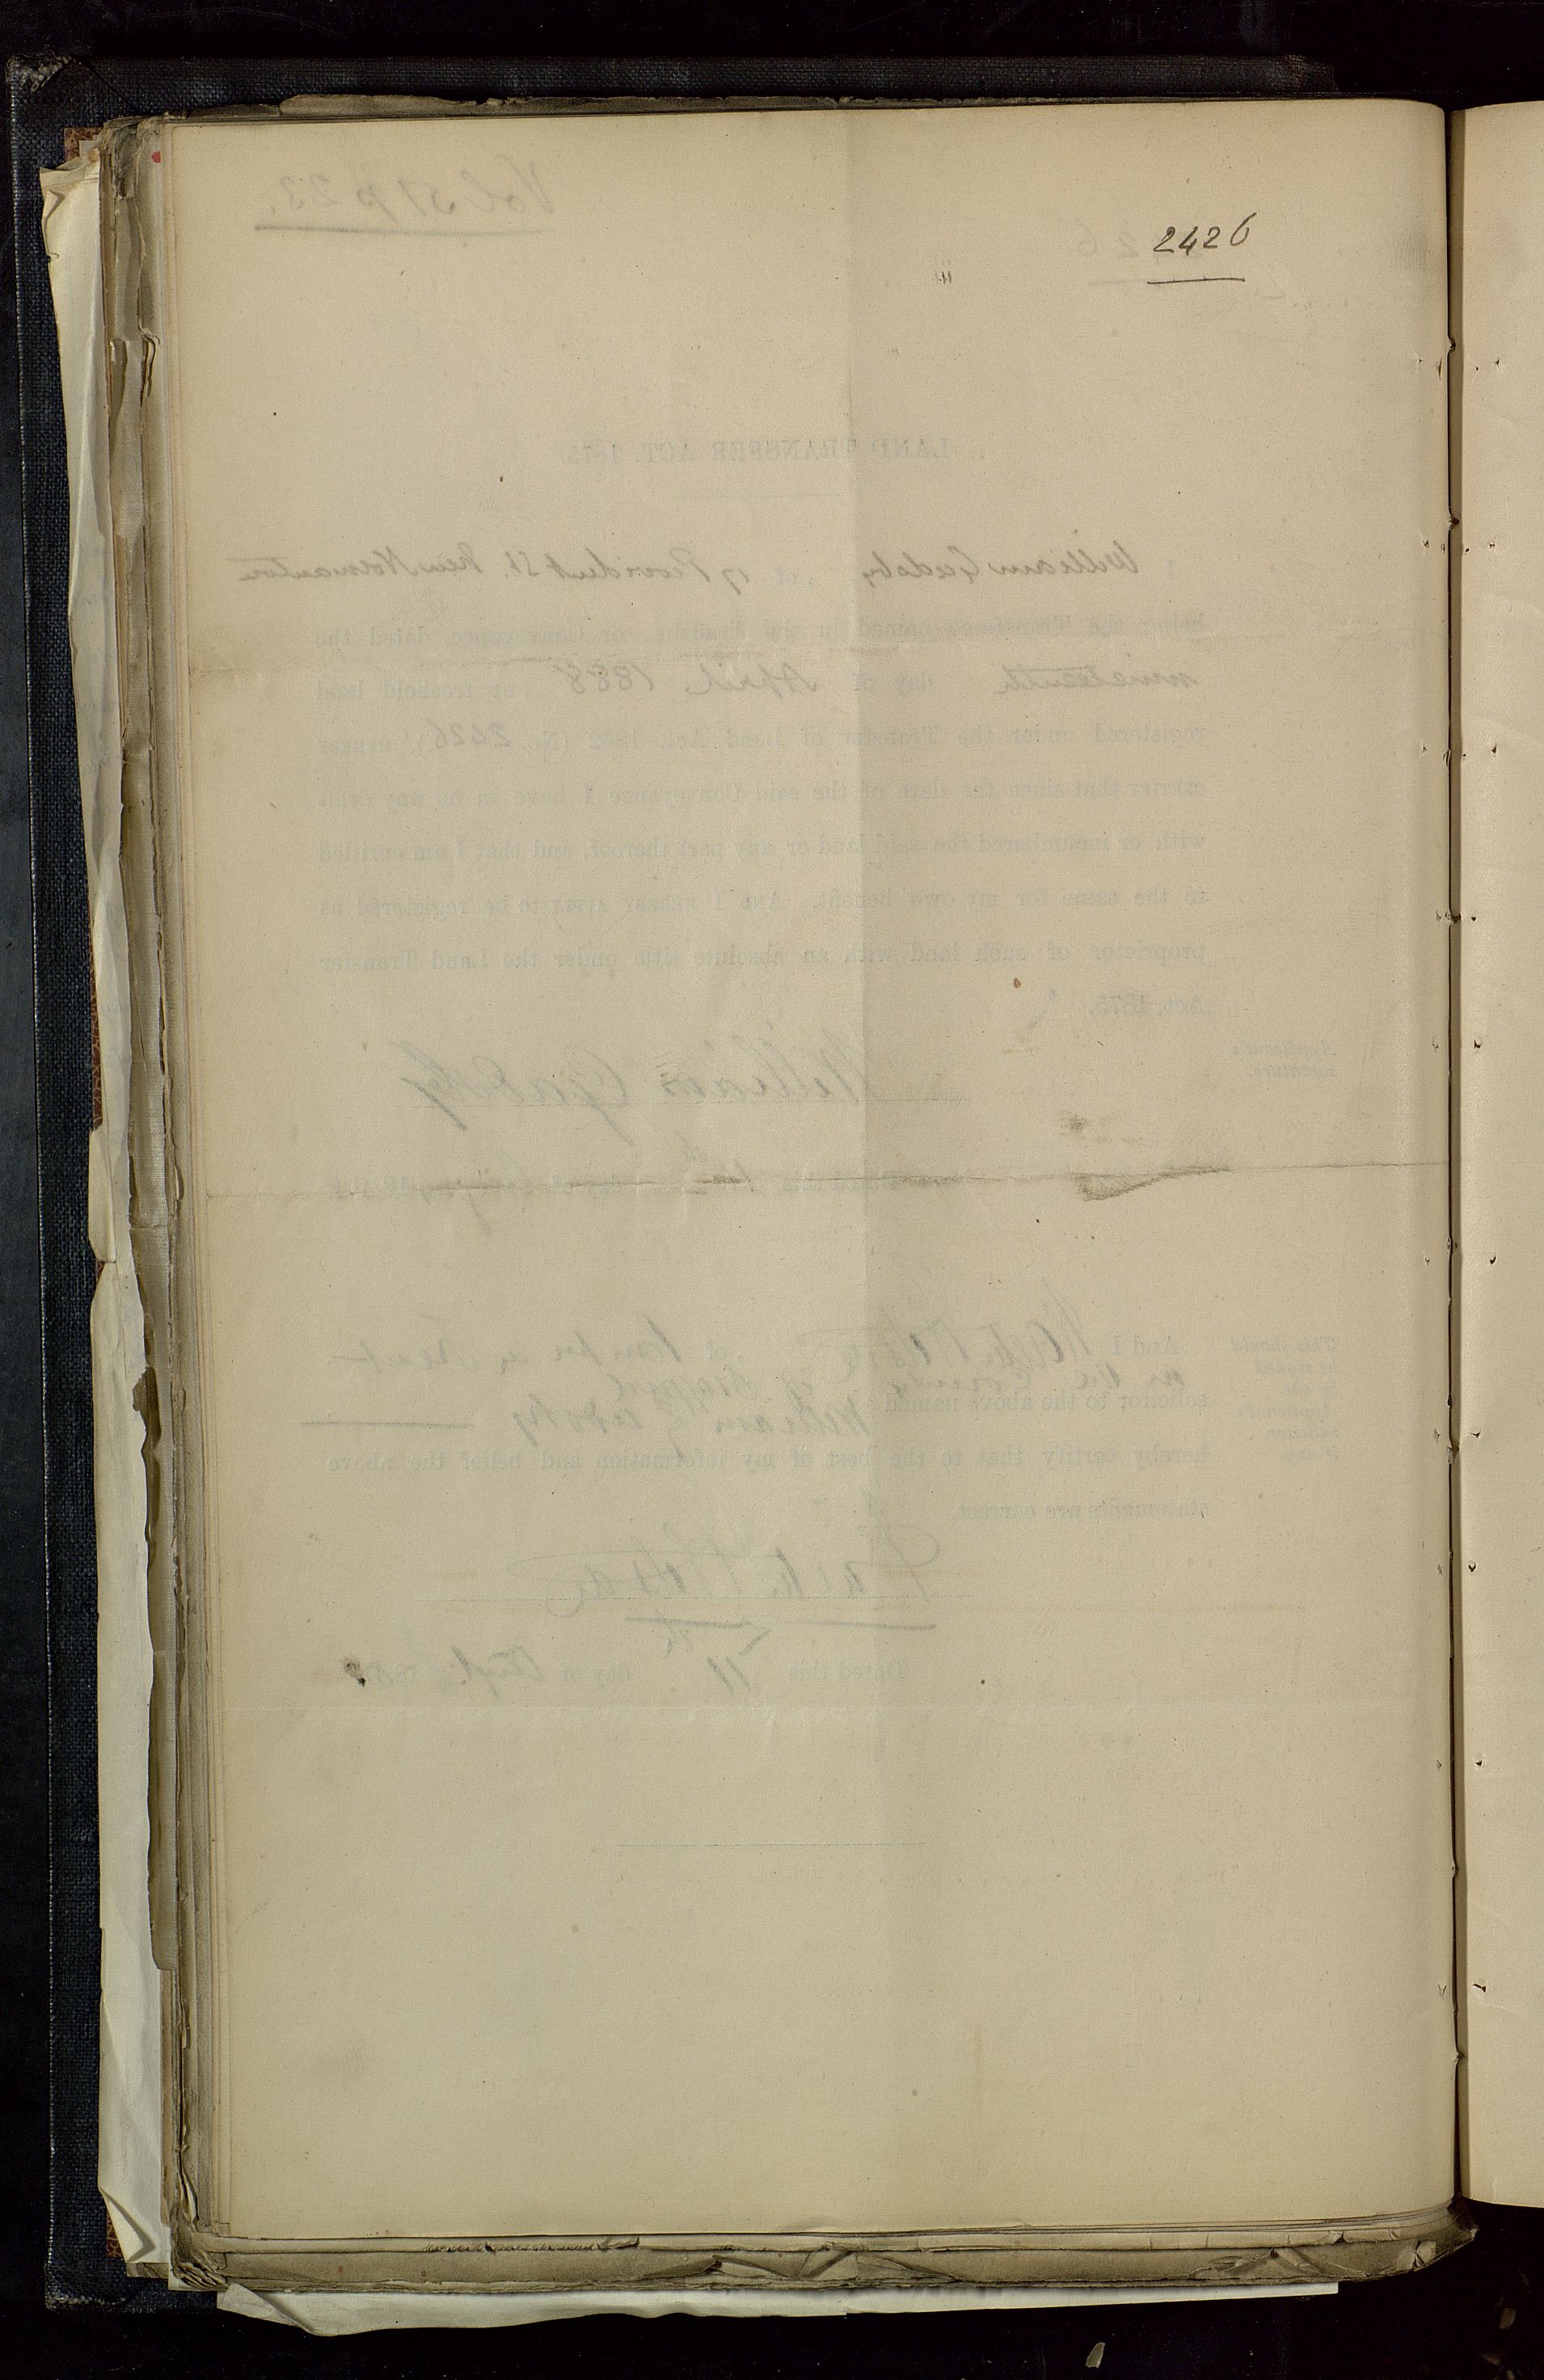 2426
Vol 51 p 23.
LAND TRANSFER ACT, 1875.
I William Gadsby of 17 Provident St. New Normanton
being the Transferee named in the Transfer, or Conveyance, dated the
nineteenth day of April 1888 of freehold land
registered under the Transfer of Land Act, 1862 (No. 2426), HEREBY
CERTIFY that since the date of the said Conveyance I have in no way dealt
with or incumbered the said land or any part thereof, and that I am entitled
to the same for my own benefit. AND I HEREBY APPLY to be registered as
proprietor of such land with an absolute title under the Land Transfer
Act, 1875.
Applicant's
signature.
William Gadsby
Dated this day of
This should
be signed
by
Applicant's
solicitor
if any.
And I of
in the County of
solicitor to the above named William Gadsby
hereby certify that to the best of my information and belief the above
statements are correct.
Dated this 11th day of